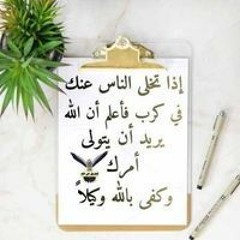 إذا تخلى الناس عنك
في كرب فأعلم أن الله
يريد أن يتولى
أمرك
وكفى بالله وكيلاً